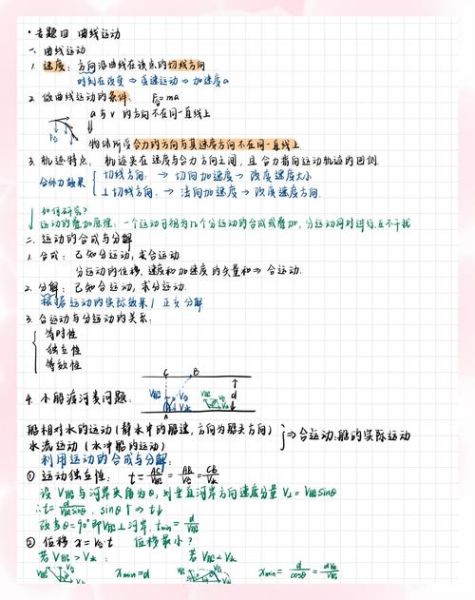 · 专题四 曲线运动
一、曲线运动
1. 速度: 方向沿曲线在该点的切线方向
时刻在改变 ⇒ 变速运动 → 加速度a
2. 做曲线运动的条件: F合=ma
a与v的方向不在同一直线上
物体所受合力的方向与其速度方向不在同一直线上
3. 轨迹特点: 轨迹夹在速度与合力方向之间, 且合力指向运动轨迹的凹侧
合外力效果 { 切线方向: → 切向加速度 → 改变速度大小
⊥切线方向: → 法向加速度 → 改变速度方向
如何研究?
运动的叠加原理: 一个运动可视为几个分运动的合成或叠加, 分运动同时进行互不干扰
二. 运动的合成与分解
1. 合成: 已知分运动, 求合运动
分运动的位移、速度和加速度的矢量和 ⇒ 合运动.
2. 分解: 已知合运动, 求分运动.
根据运动的实际效果 / 正交分解
3. 合运动与分运动的关系:
{ 等时性
独立性
等效性
C B
4. 小船渡河类问题: d
A
船相对水的运动(静水中的船速, 方向为船头方向)
水流运动(水冲船的运动) } ⇒ 合运动: 船的实际运动
利用运动的合成与分解:
① 运动独立性: t = AC/ = AB/ = CB/
设V船与河岸夹角为θ, 则垂直河岸方向速度分量V⊥=V船sinθ
∴t= d/V船sinθ , sinθ↑ ⇒ t↓
故当θ=90°即V船⊥河岸, tmin = d/V船
② 位移 x = V合t 位移最小?
若V船>V水: 若V船<V水
xmin=d xmin = d/cosθ = dV水/V船